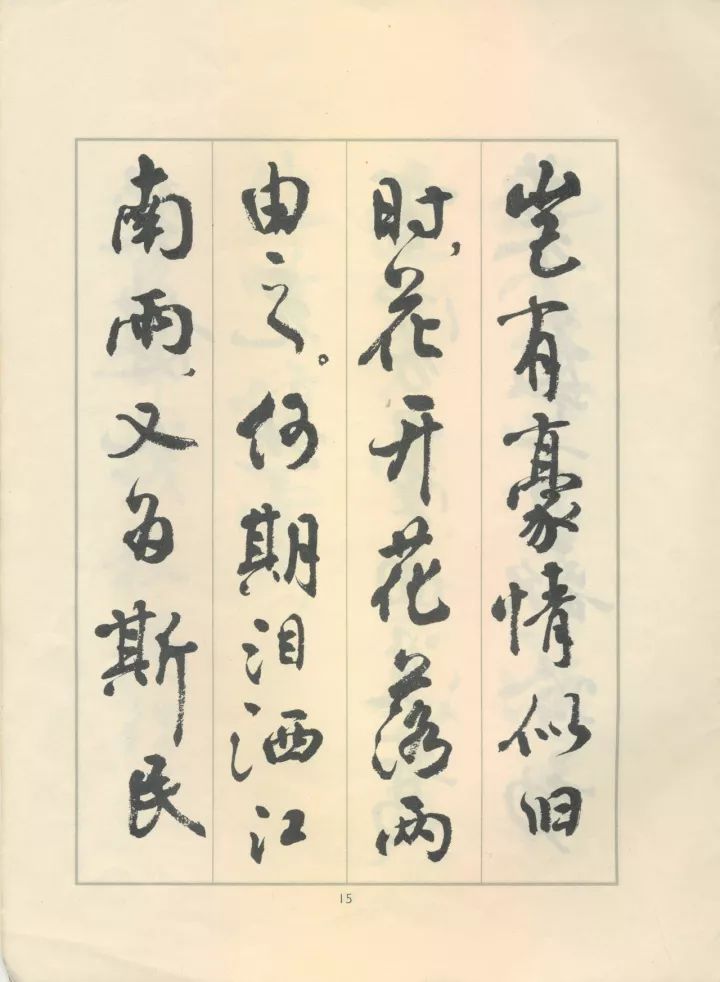 岂有豪情似旧
时，花开花落两
由之。何期泪洒江
南雨，又为斯民
15